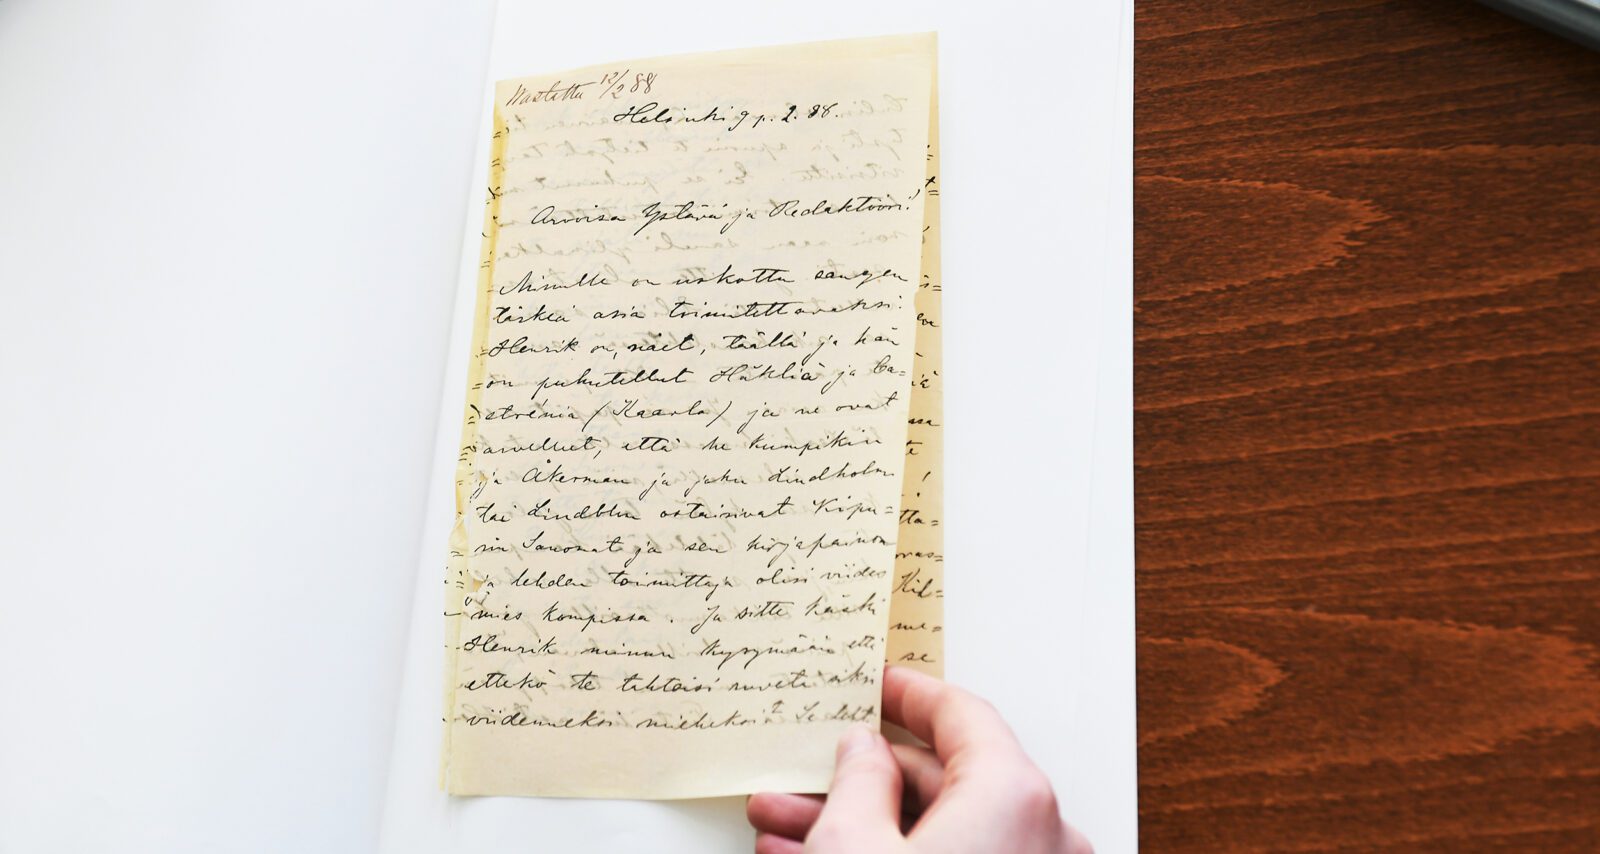 Wastattu 12/2 88
Helsinki 9 p. 2. 88.
Arvoisa Ystävä ja Redaktööri!
Minulle on uskottu sangen
tärkeä asia toimitettavaksi.
Henrik on, näet, täällä ja hän
on puhutellut Häkliä ja Ca=
strénia (Kaarlo) ja ne ovat
arvelleet, että he kumpikin
ja Åkerman ja joku Lindholm
tai Lindblm ostaisivat Kipu=
nin Sanomat ja sen kirjapainon
ja lehden toimittaja olisi viides
mies kompissa. Ja sitte käski
Henrik minun kysymään että
ettekö te tahtoisi ruveta siksi
viidenneksi mieheksi? Se leht